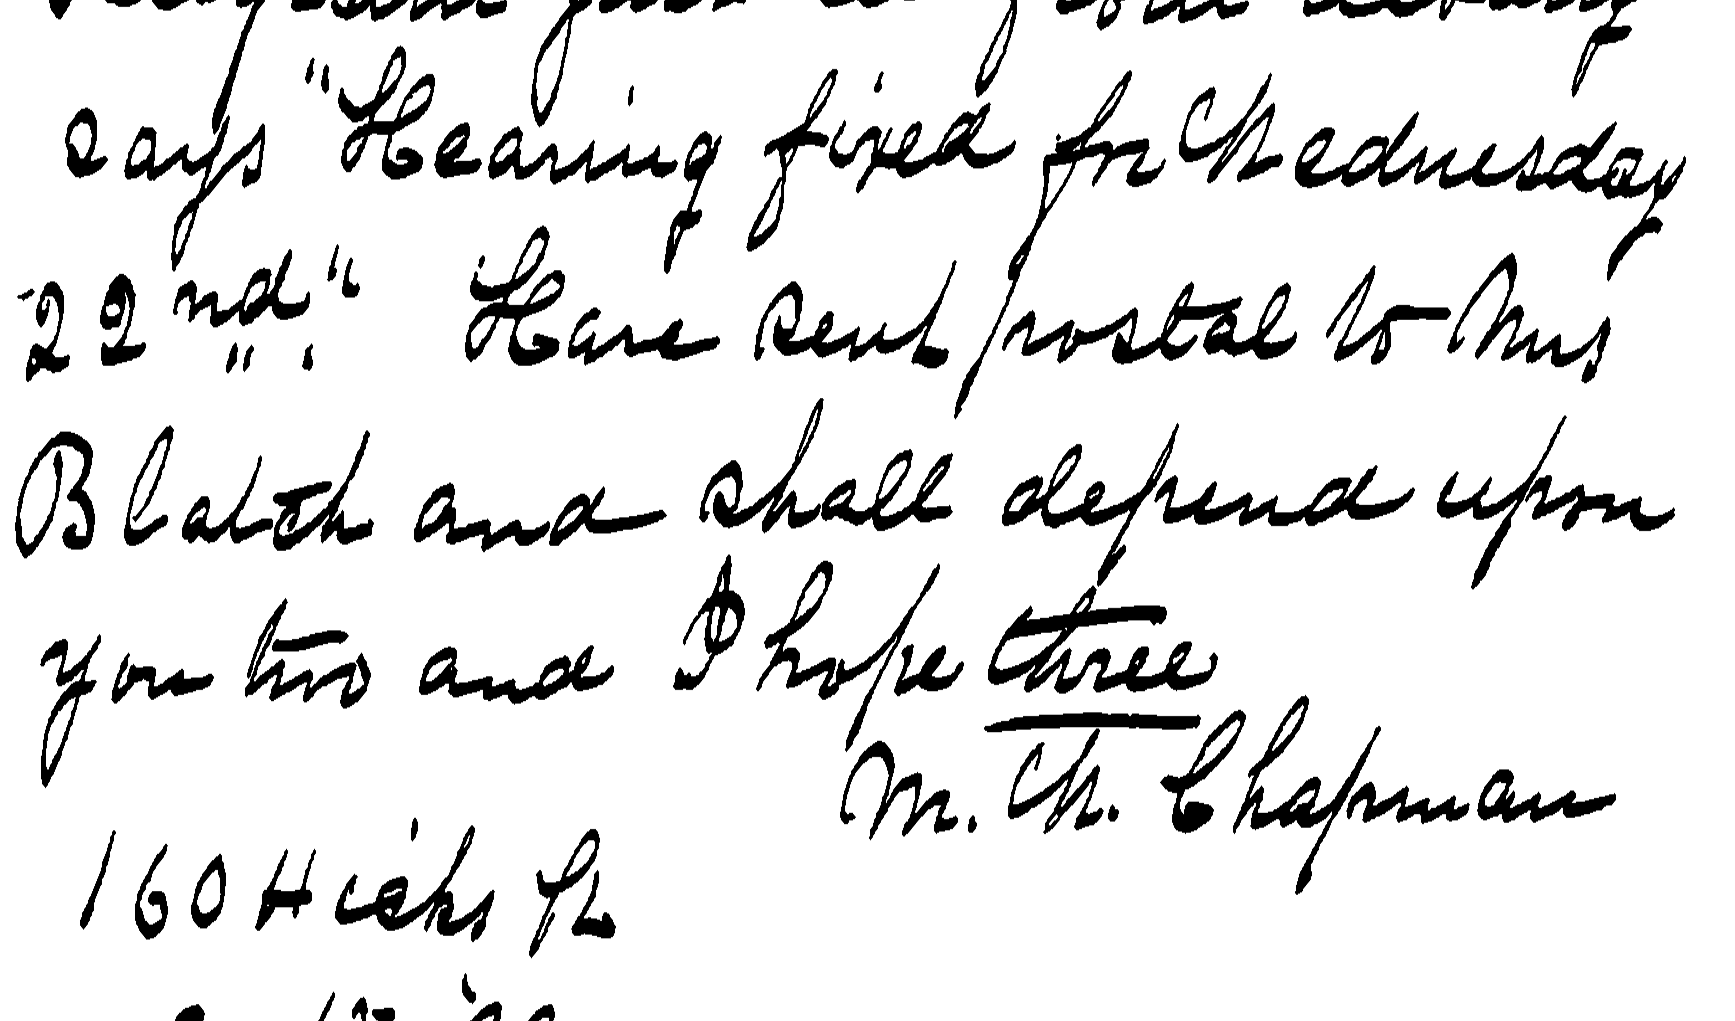 says "Hearing fixed for Wednesday
22nd." Have sent postal to Mrs
Blatch and shall depend upon
you two and I hope three
M. W. Chapman
160 Hicks St